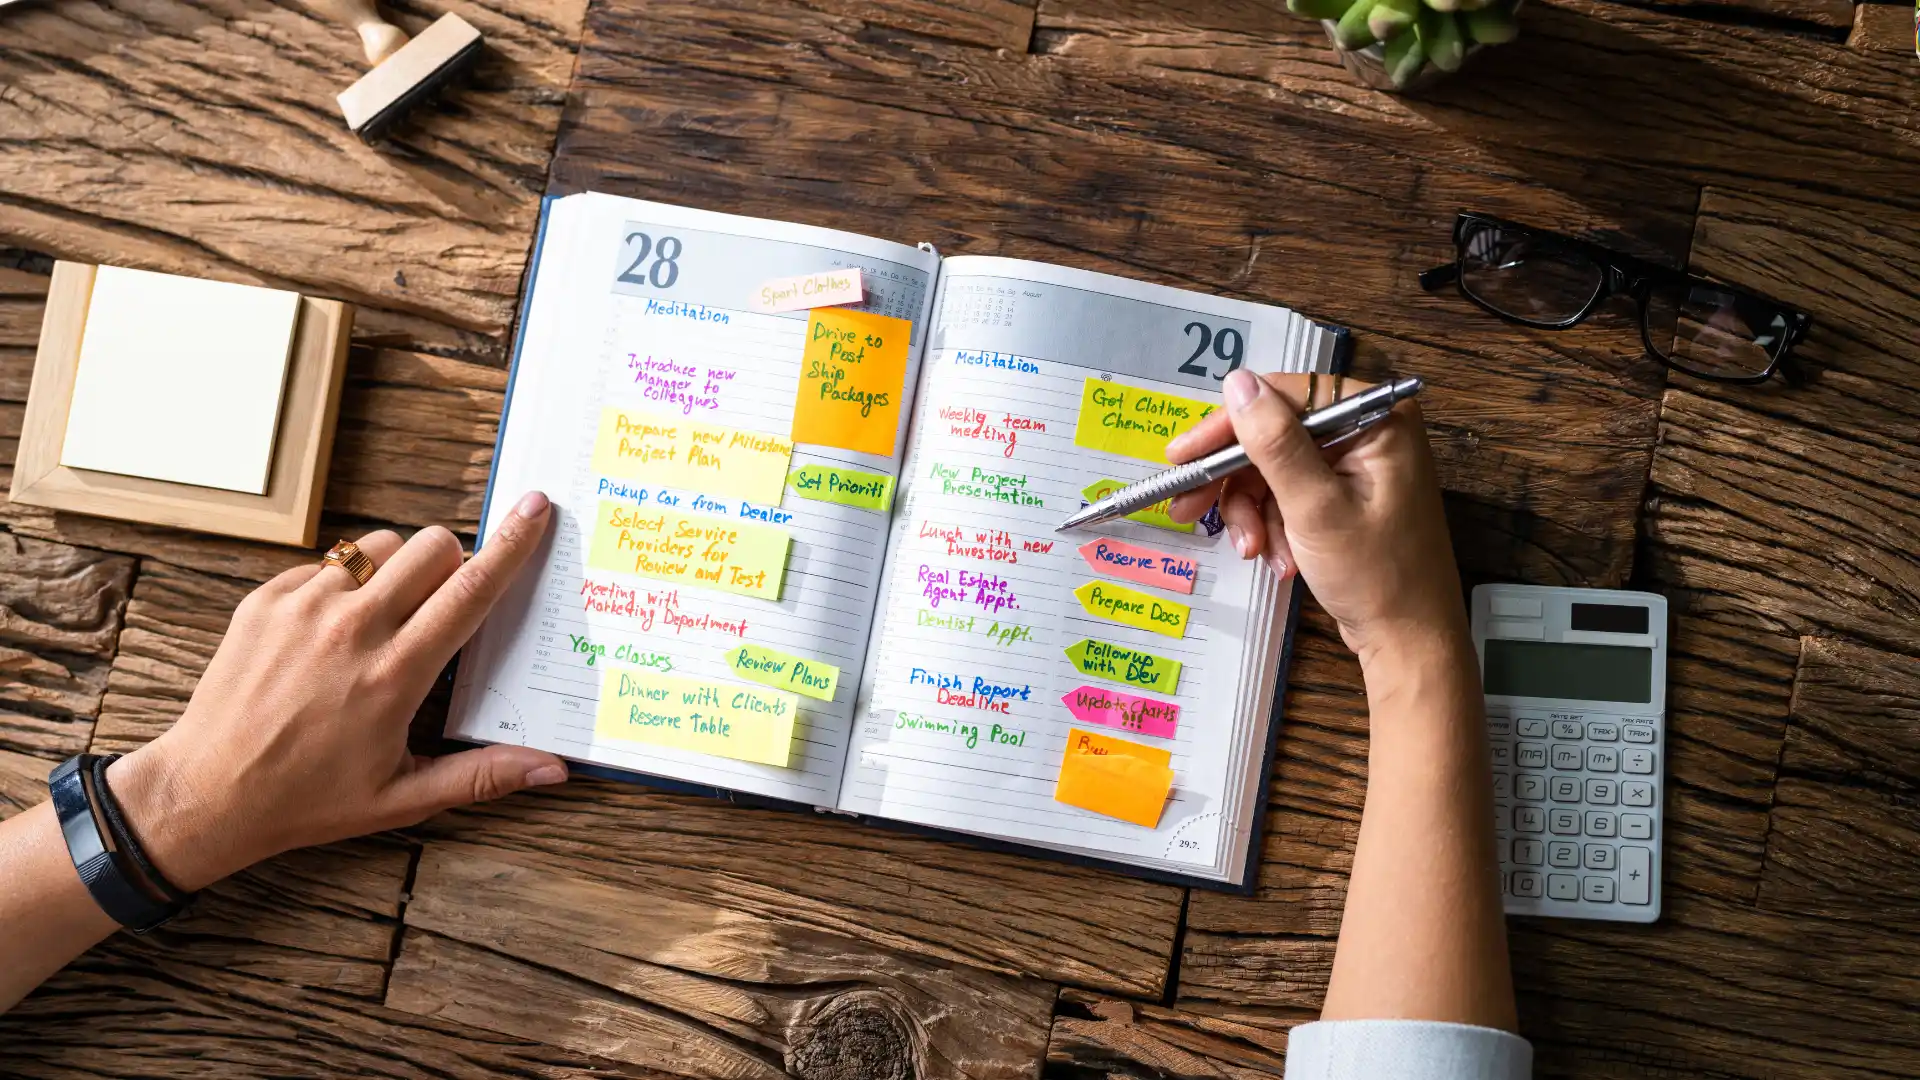 28
Sport Clothes
Meditation
Drive to
Post
Ship
Packages
Introduce new
Manager to
Colleagues
Prepare new Milestone
Project Plan
Set Prioriti
Pickup Car from Dealer
Select Service
Providers for
Review and Test
Meeting with
Marketing Department
Yoga Classes
Review Plans
Dinner with Clients
Reserve Table
28.7.
August
29
Meditation
Get Clothes f
Chemical
Weekly team
meeting
New Project
Presentation
Lunch with new
Investors
Reserve Table
Real Estate
Agent Appt.
Prepare Docs
Dentist Appt.
Follow up
with Dev
Finish Report
Deadline
Update Charts
!!!
Swimming Pool
Buy
29.7.
RATE SET
TAX RATE
√
%
TAX-
TAX+
MR
M-
M+
÷
7
8
9
×
4
5
6
−
1
2
3
+
0
.
=